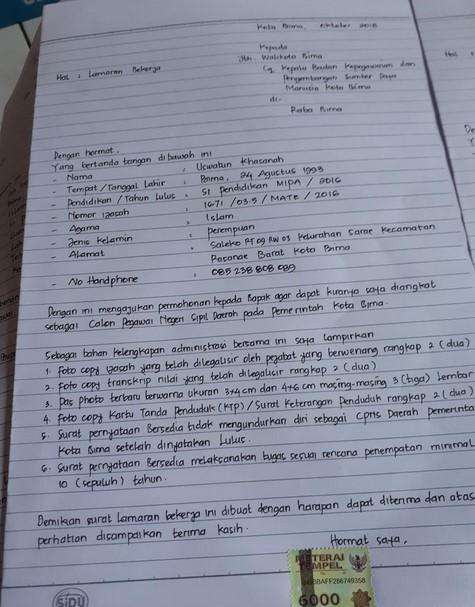 Kota Bima, Oktober 2018
Hal : Lamaran Bekerja
Kepada
Yth. Walikota Bima
Cq. Kepala Badan Kepegawaian dan
Pengembangan Sumber Daya
Manusia Kota Bima
di-
Raba Bima
Dengan hormat,
Yang bertanda tangan dibawah ini
- Nama : Uswatun Khasanah
- Tempat/Tanggal Lahir : Bima, 24 Agustus 1993
- Pendidikan / Tahun Lulus : S1 Pendidikan MIPA / 2016
- Nomor Ijasah : 1671 /03.5 / MATE / 2016
- Agama : Islam
- Jenis Kelamin : perempuan
- Alamat : Saleko RT 09 RW 03 Kelurahan Sarae Kecamatan
Rasanae Barat Kota Bima
- No Handphone : 085 238 808 089
Dengan ini mengajukan permohonan kepada Bapak agar dapat kiranya saya diangkat
sebagai Calon Pegawai Negeri Sipil Daerah pada Pemerintah Kota Bima.
Sebagai bahan kelengkapan administrasi bersama ini saya lampirkan
1. Foto copy Ijasah yang telah dilegalisir oleh pejabat yang berwenang rangkap 2 (dua)
2. Foto copy transkrip nilai yang telah dilegalisir rangkap 2 (dua)
3. Pas photo terbaru berwarna ukuran 3x4 cm dan 4x6 cm masing-masing 3 (tiga) lembar
4. Foto copy Kartu Tanda Penduduk (KTP) / Surat Keterangan Penduduk rangkap 2 (dua)
5. Surat pernyataan Bersedia tidak mengundurkan diri sebagai CPNS Daerah pemerinta
Kota Bima setelah dinyatakan Lulus.
6. Surat pernyataan Bersedia melaksanakan tugas sesuai rencana penempatan minimal
10 (sepuluh) tahun.
Demikan surat lamaran bekerja ini dibuat dengan harapan dapat diterima dan atas
perhatian disampaikan terima kasih.
Hormat saya,
METERAI
TEMPEL
BAFF286749358
6000
SiDU